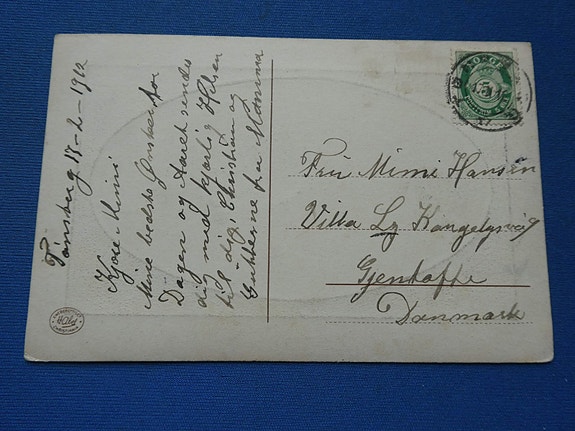 Tønsberg 17-2-1912
Kjære Mimi
Mine bedste Ønsker for
Dagen og Aaret sendes
dig med kjærlig Hilsen
til dig, Christian og
Gutterne fra Mamma
NORGE
5
Fru Mimi Hansen
Villa
Gjentofte
Danmark